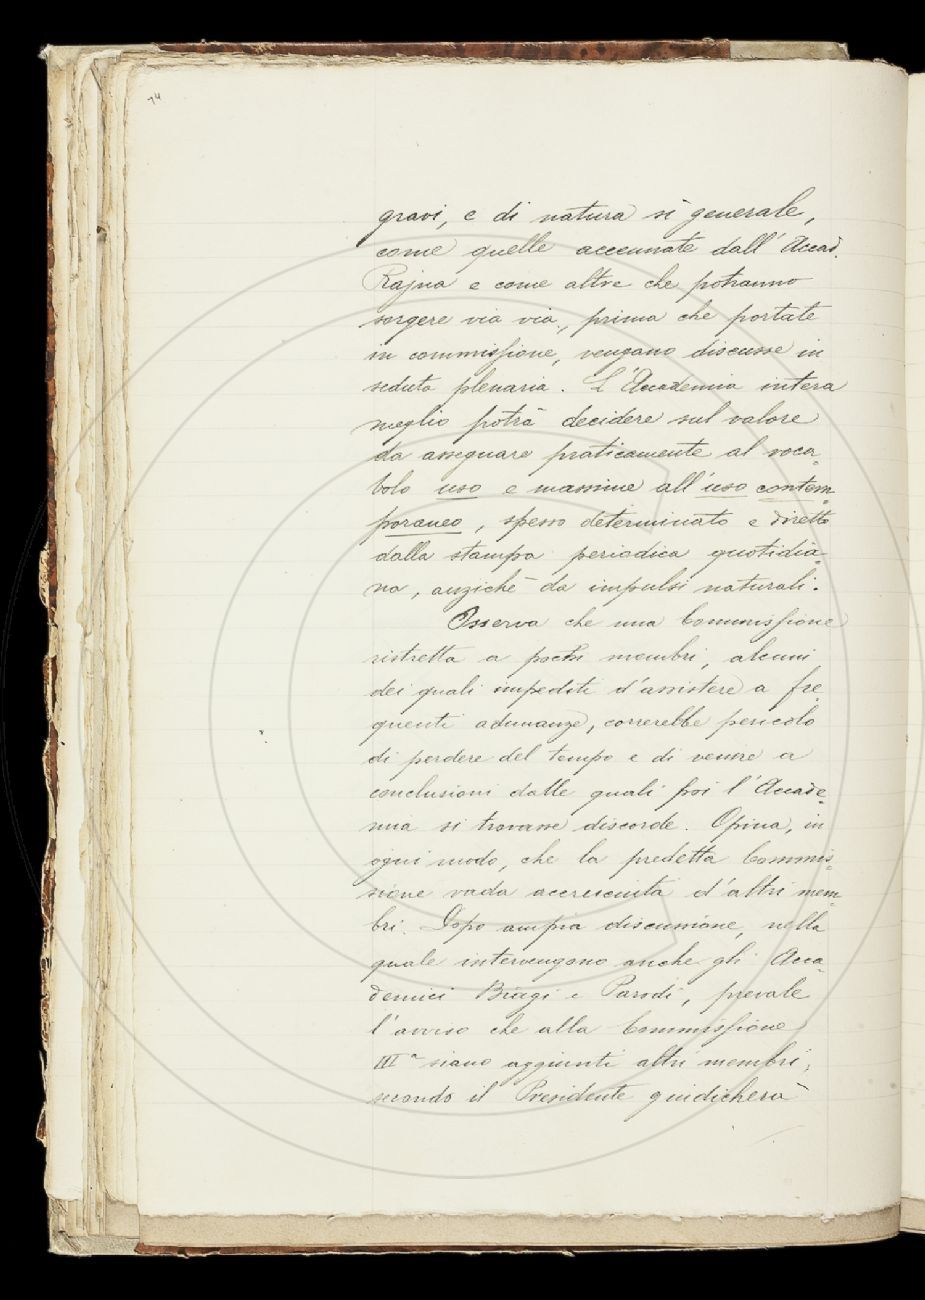 74
gravi, e di natura sì generale,
come quelle accennate dall'Accad.
Rajna e come altre che potranno
sorgere via via, prima che portate
in commissione, vengano discusse in
seduta plenaria. L'Accademia intera
meglio potrà decidere sul valore
da assegnare praticamente al voca-
bolo uso e massime all'uso contem-
poraneo, spesso determinato e diretto
dalla stampa periodica quotidia-
na, anzichè da impulsi naturali.
Osserva che una Commissione
ristretta a pochi membri, alcuni
dei quali impediti d'assistere a fre-
quenti adunanze, correrebbe pericolo
di perdere del tempo e di venire a
conclusioni dalle quali poi l'Accade-
mia si trovasse discorde. Opina, in
ogni modo, che la predetta Commis-
sione vada accresciuta d'altri mem-
bri. Dopo ampia discussione, nella
quale intervengono anche gli Acca-
demici Biagi e Parodi, prevale
l'avviso che alla Commissione
IIIª siano aggiunti altri membri,
secondo il Presidente giudicherà